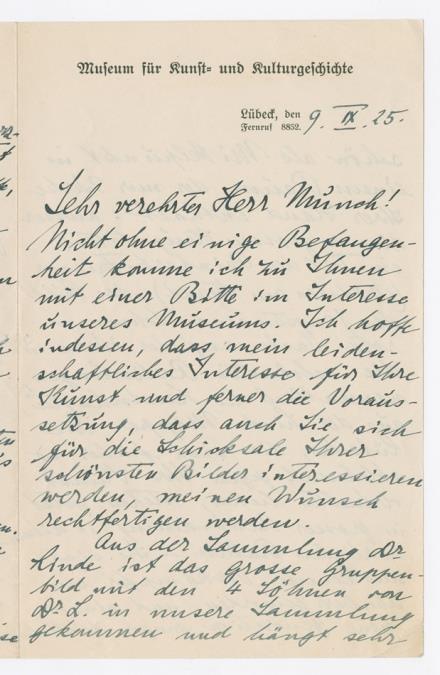 Museum für Kunst- und Kulturgeschichte
Lübeck, den 9. IX. 25.
Fernruf 8852.
Sehr verehrter Herr Munch!
Nicht ohne einige Befangen-
heit komme ich zu Ihnen
mit einer Bitte im Interesse
unseres Museums. Ich hoffe
indessen, dass mein leiden-
schaftliches Interesse für Ihre
Kunst und ferner die Voraus-
setzung, dass auch Sie sich
für die Schicksale Ihrer
schönsten Bilder interessieren
werden, meinen Wunsch
rechtfertigen werden.
Aus der Sammlung Dr
Linde ist das grosse Gruppen-
bild mit den 4 Söhnen von
Dr. L. in unsere Sammlung
gekommen und hängt sehr